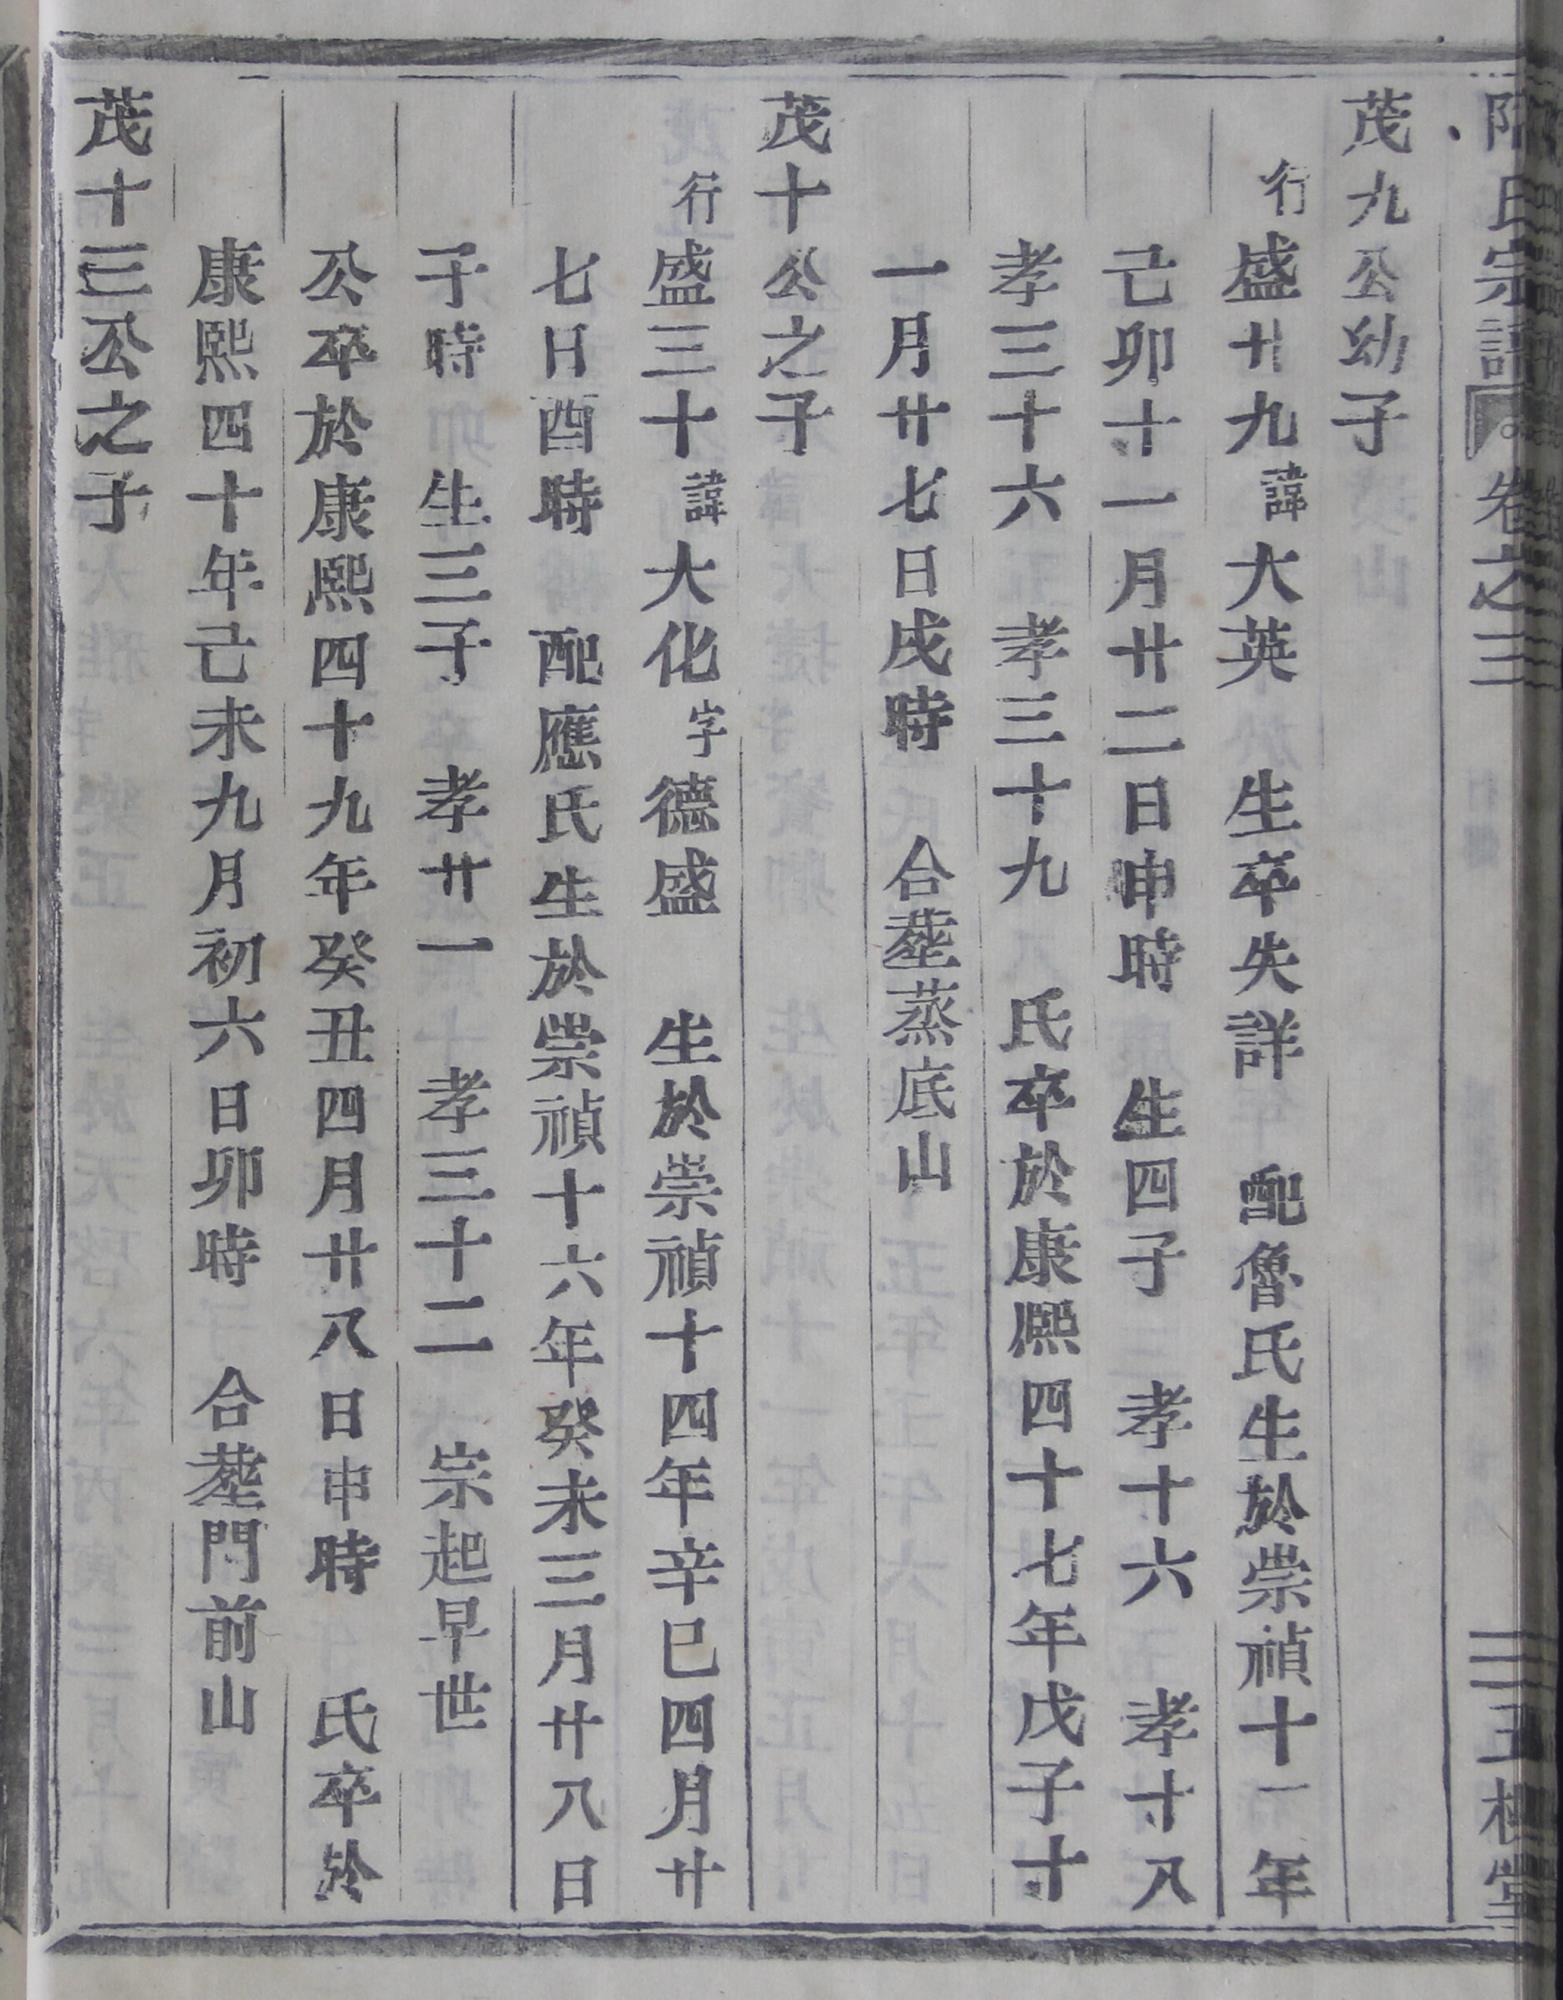 氏宗譜 卷之三 三
茂九公幼子
行盛廿九諱大英 生卒失詳 配魯氏生於崇禎十一年
己卯十一月廿二日申時 生四子 孝十六 孝十八
孝三十六 孝三十九 氏卒於康熙四十七年戊子十
一月廿七日戌時 合塟蒸底山
茂十公之子
行盛三十諱大化字德盛 生於崇禎十四年辛巳四月廿
七日酉時 配應氏生於崇禎十六年癸未三月廿八日
子時 生三子 孝廿一 孝三十二 宗起早世
公卒於康熙四十九年癸丑四月廿八日申時 氏卒於
康熙四十年己未九月初六日卯時 合塟門前山
茂十三公之子